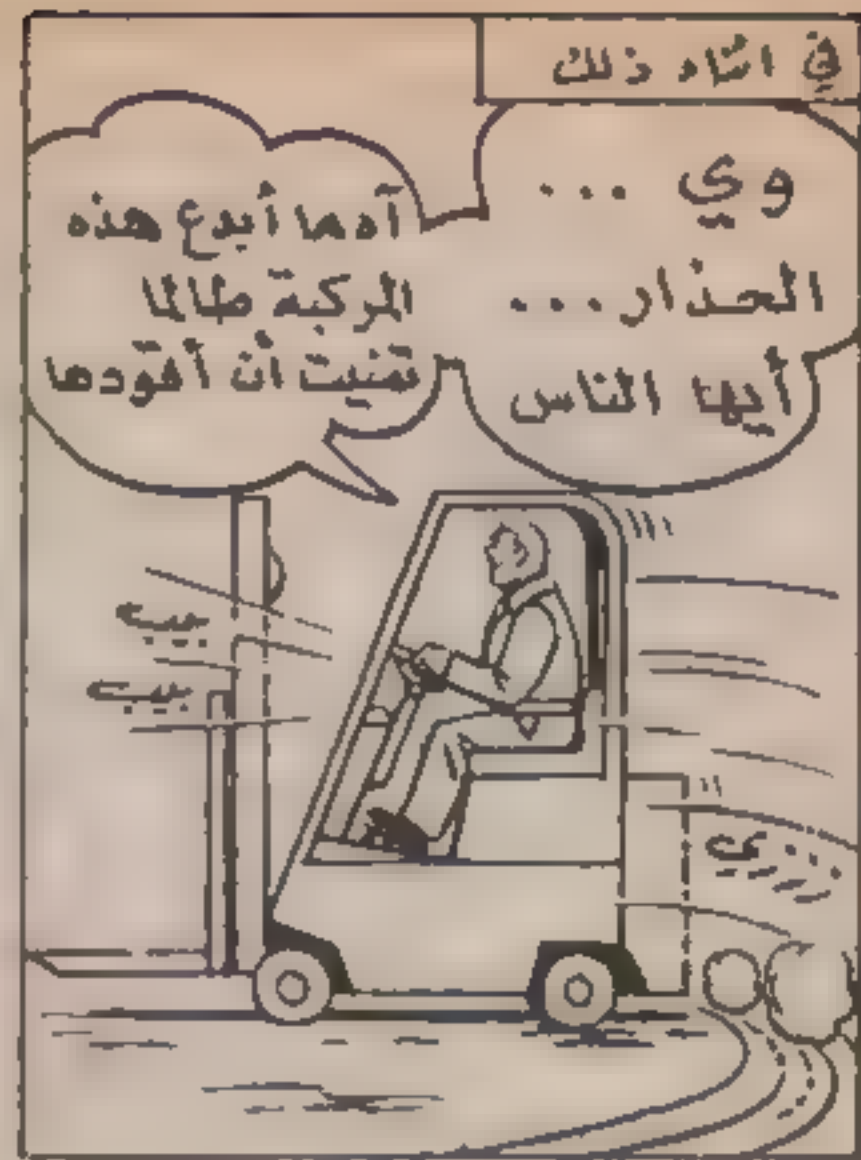 في اثناء ذلك
وي ...
الحذار ...
أيها الناس
آه ما أبدع هذه
المركبة طالما
تمنيت أن أقودها
بيب
بيب
زززي